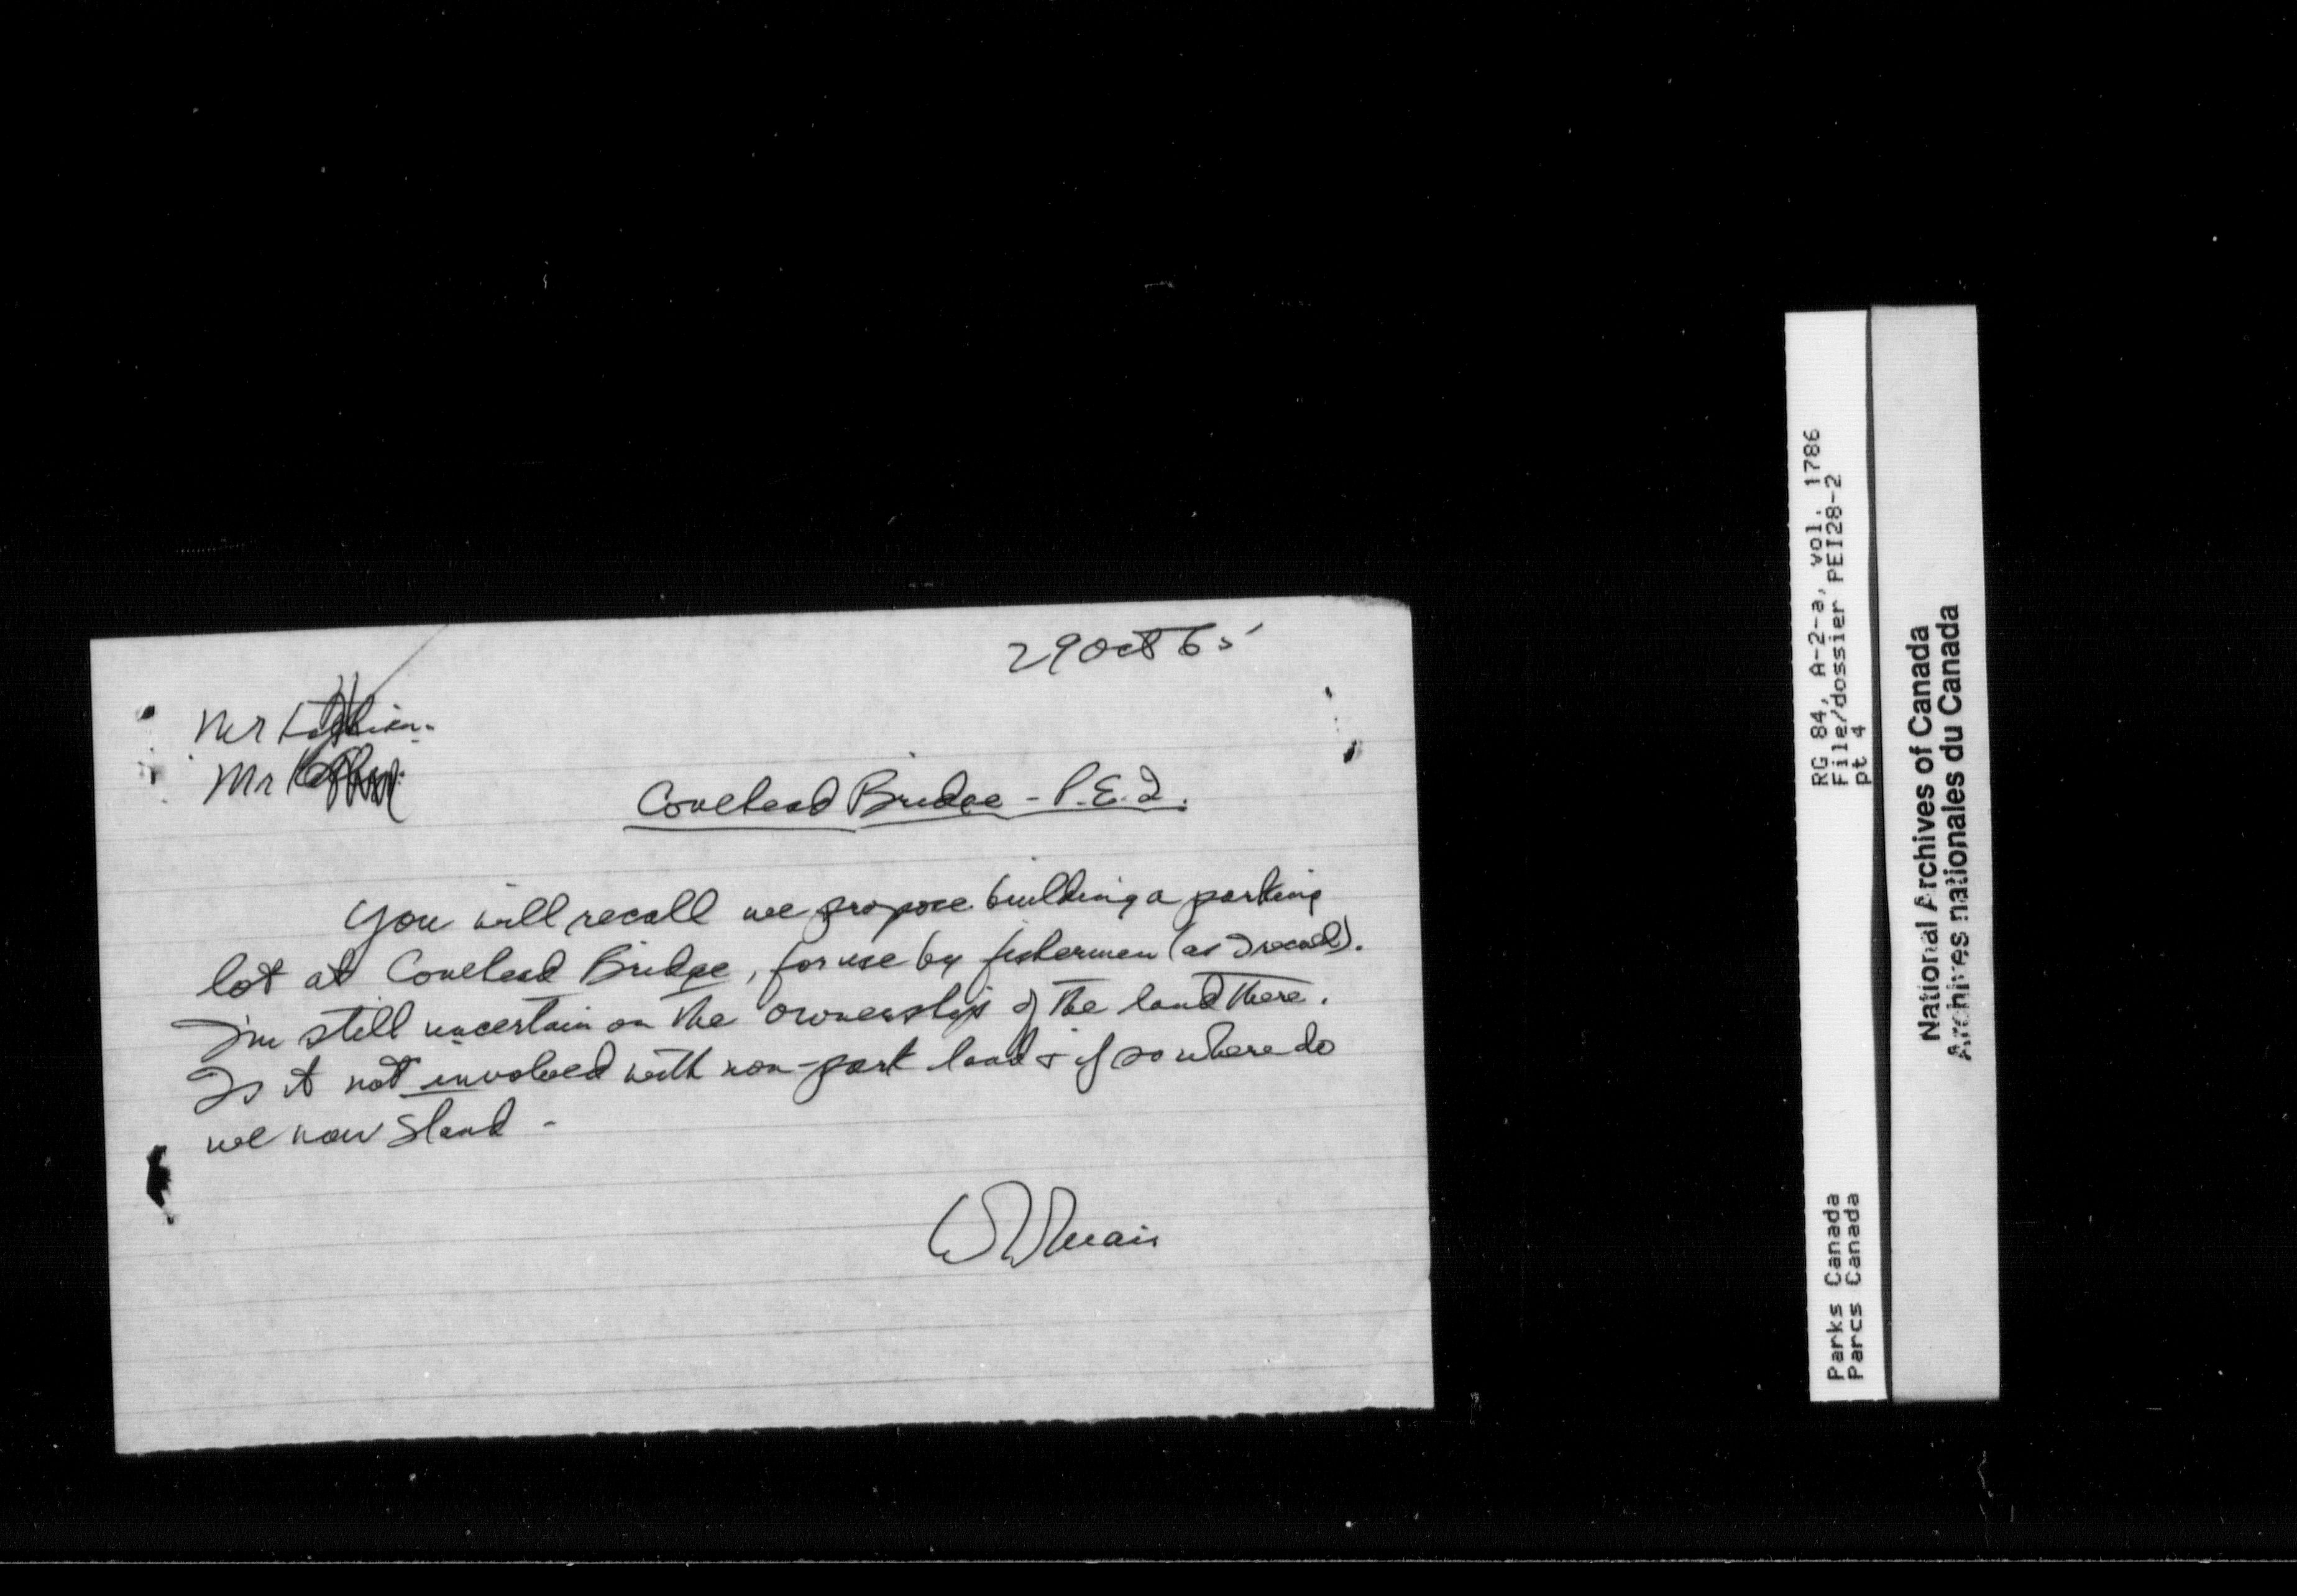 29 Oct 65
Mr
Mr
Covehead Bridge - P.E.I.
You will recall we propose building a parking
lot at Covehead Bridge, for use by fishermen (as I recall).
I'm still uncertain on the ownership of the land there.
Is it not involved with non-park land & if so where do
we now stand -
RG 84, A-2-a, vol. 1786
File/dossier PEI28-2
pt 4
Parks Canada
Parcs Canada
National Archives of Canada
Archives nationales du Canada